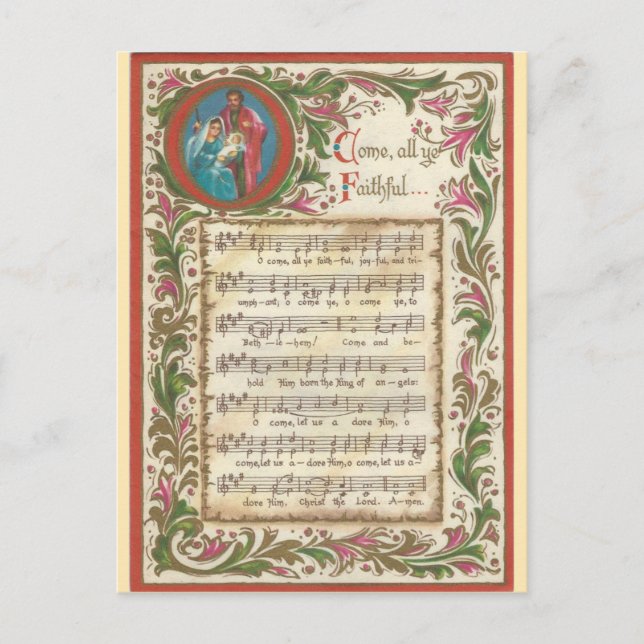 Come, all ye
Faithful...
O come, all ye faith-ful, joy-ful, and tri-
umph-ant; o come ye, o come ye, to
Beth-le-hem! Come and be-
hold Him born the King of an-gels:
O come, let us a dore Him, o
come, let us a-dore Him, o come, let us a-
dore Him, Christ the Lord. A-men.